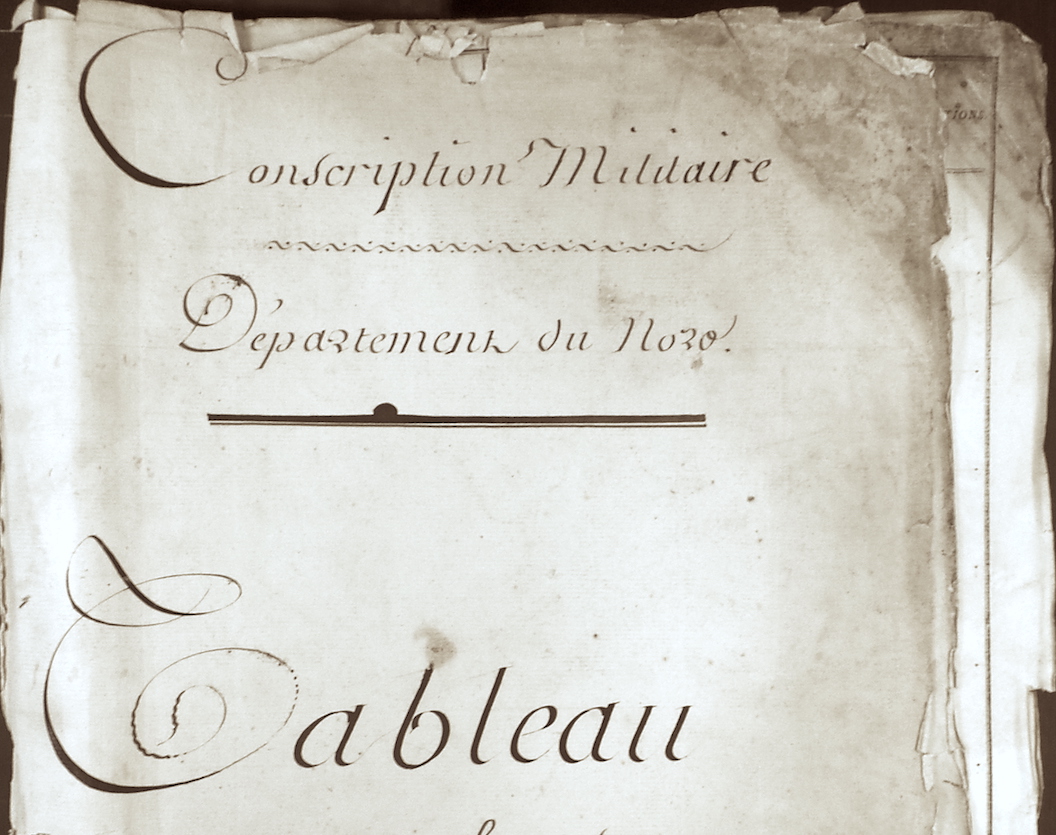 Conscription Militaire
Département du Nord.
Tableau